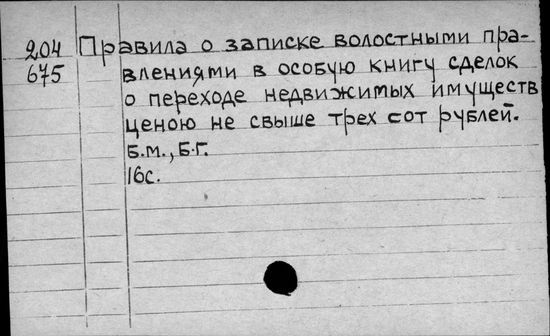 204 Правила о записке волостными пра-
675 влениями в особую книгу сделок
о переходе недвижимых имуществ
ценою не свыше трех сот рублей.
Б.м., Б.г.
16с.